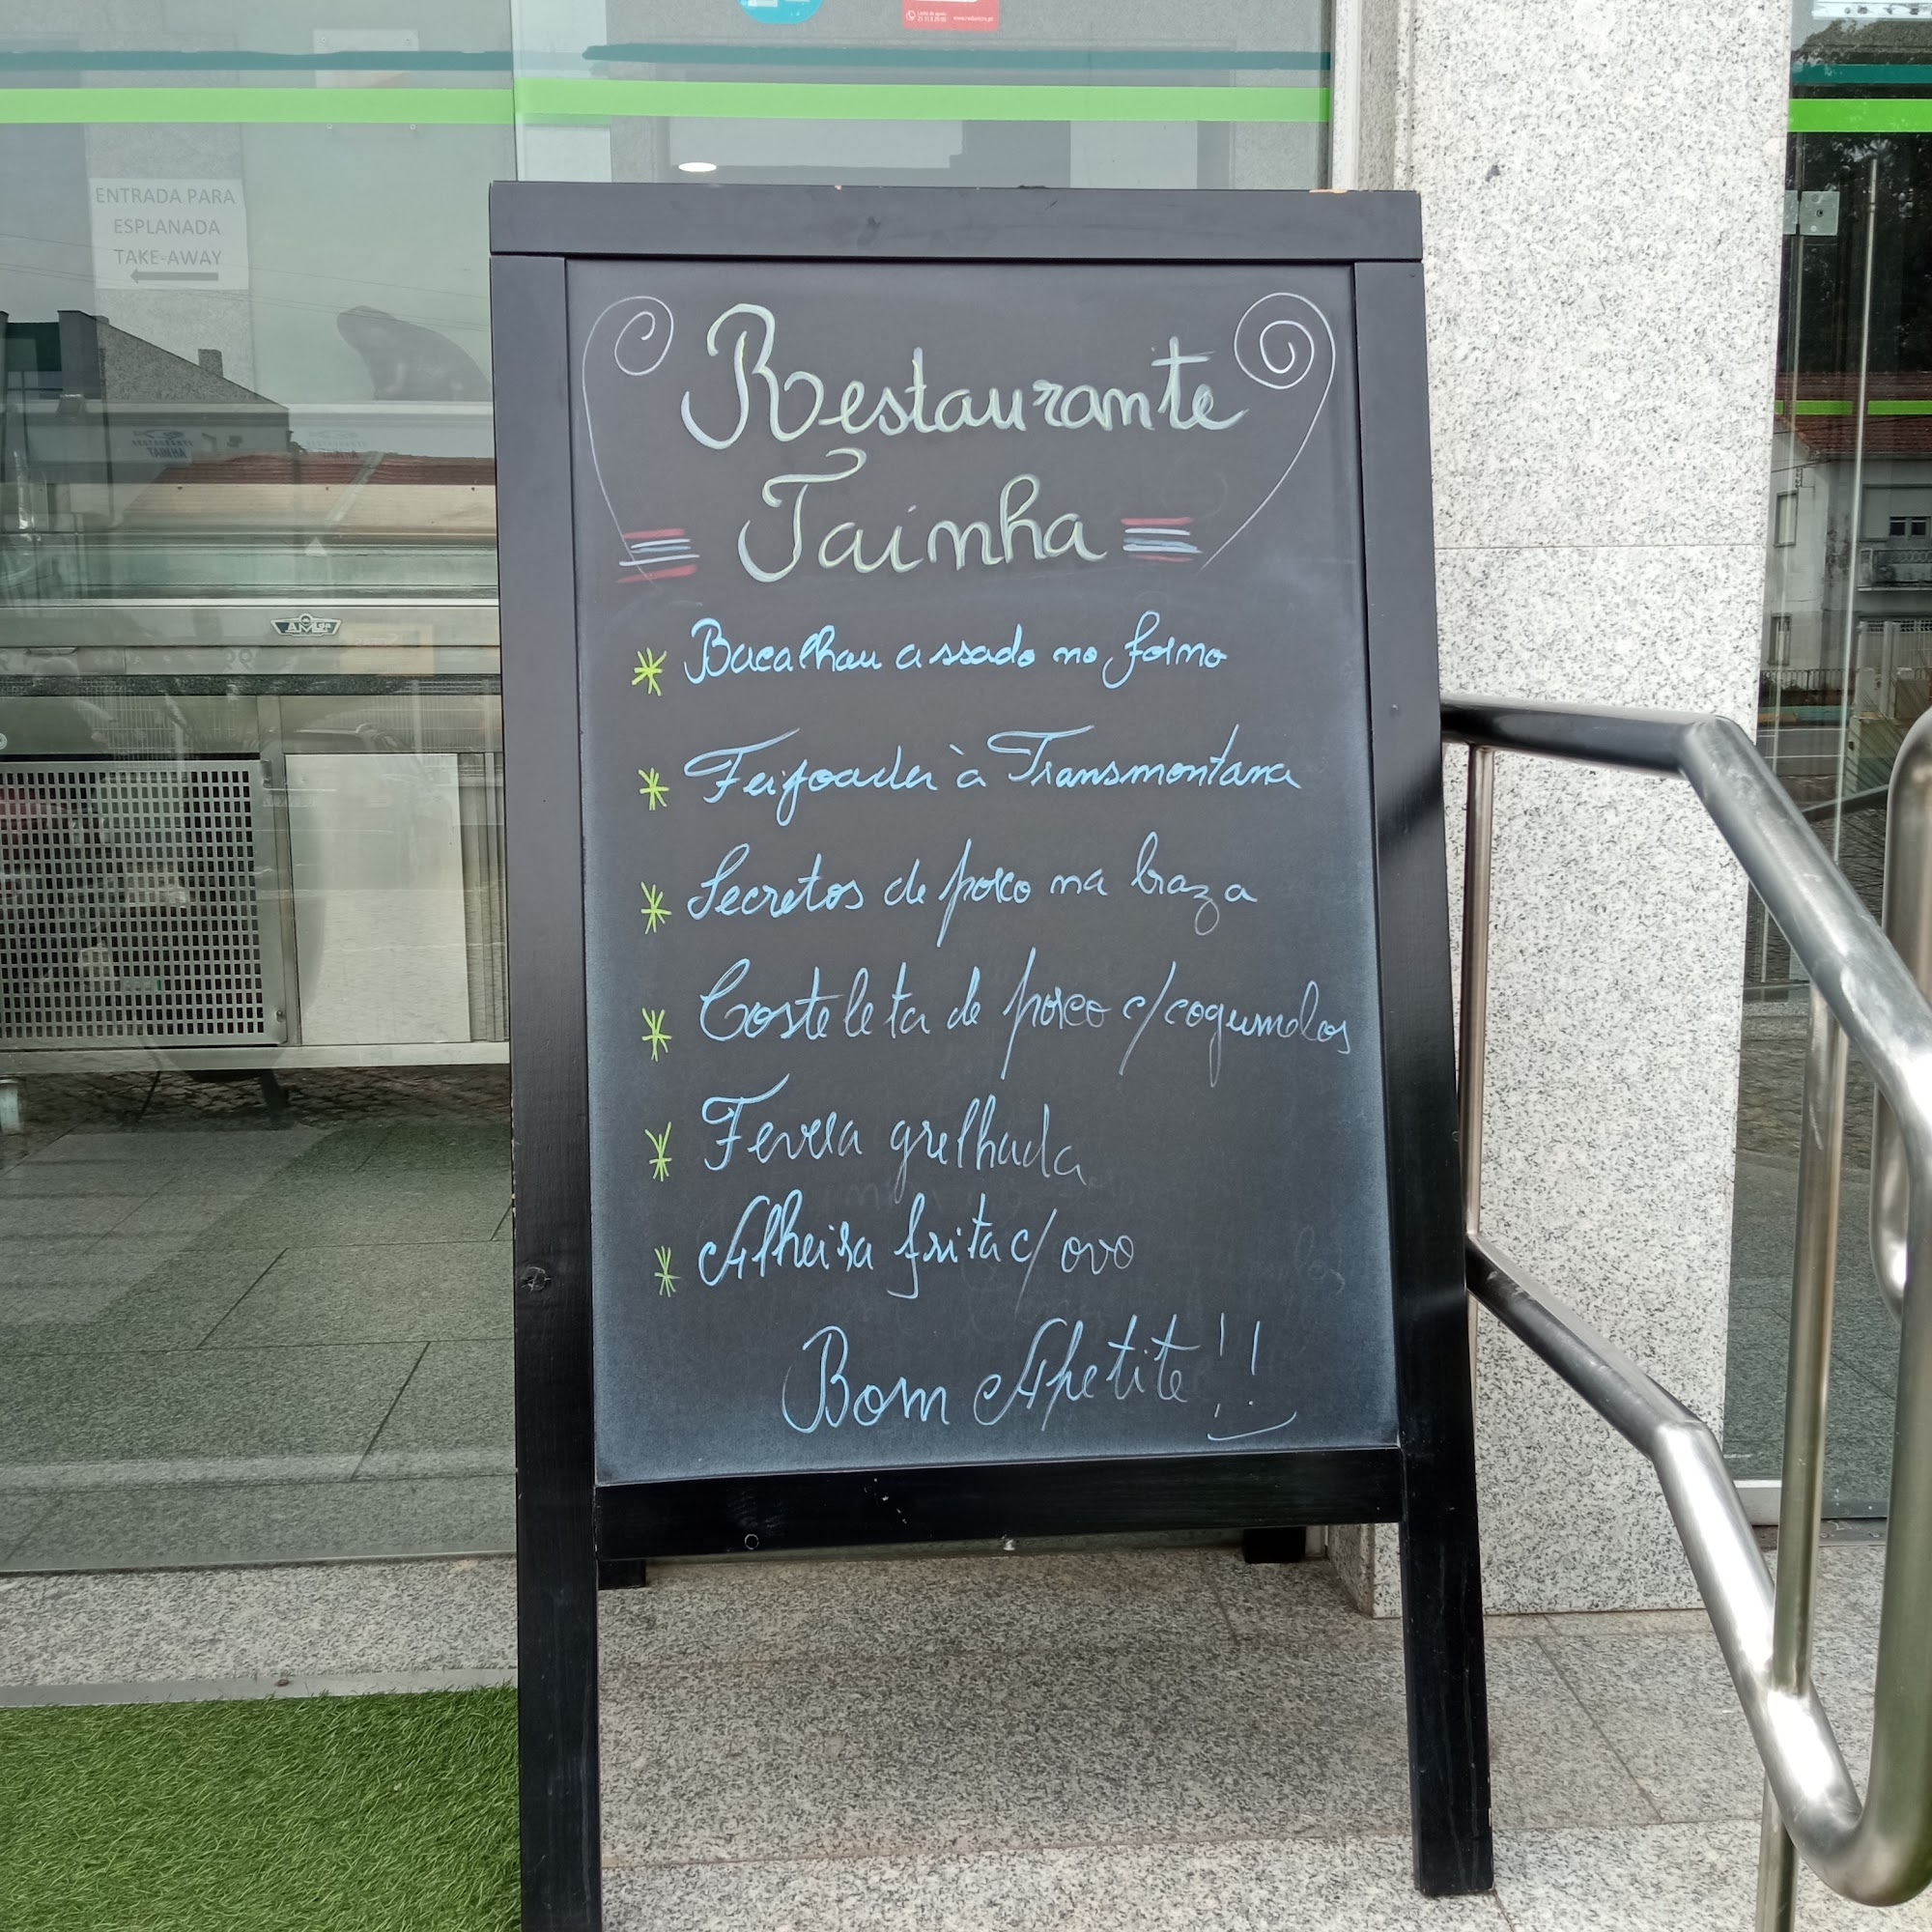 ENTRADA PARA
ESPLANADA
TAKE-AWAY
Restaurante
Tainha
Bacalhau assado no forno
Feijoada à Transmontana
Secretos de porco na braza
Costeleta de porco c/cogumelos
Fevera grelhada
Alheira frita c/ ovo
Bom Apetite!!